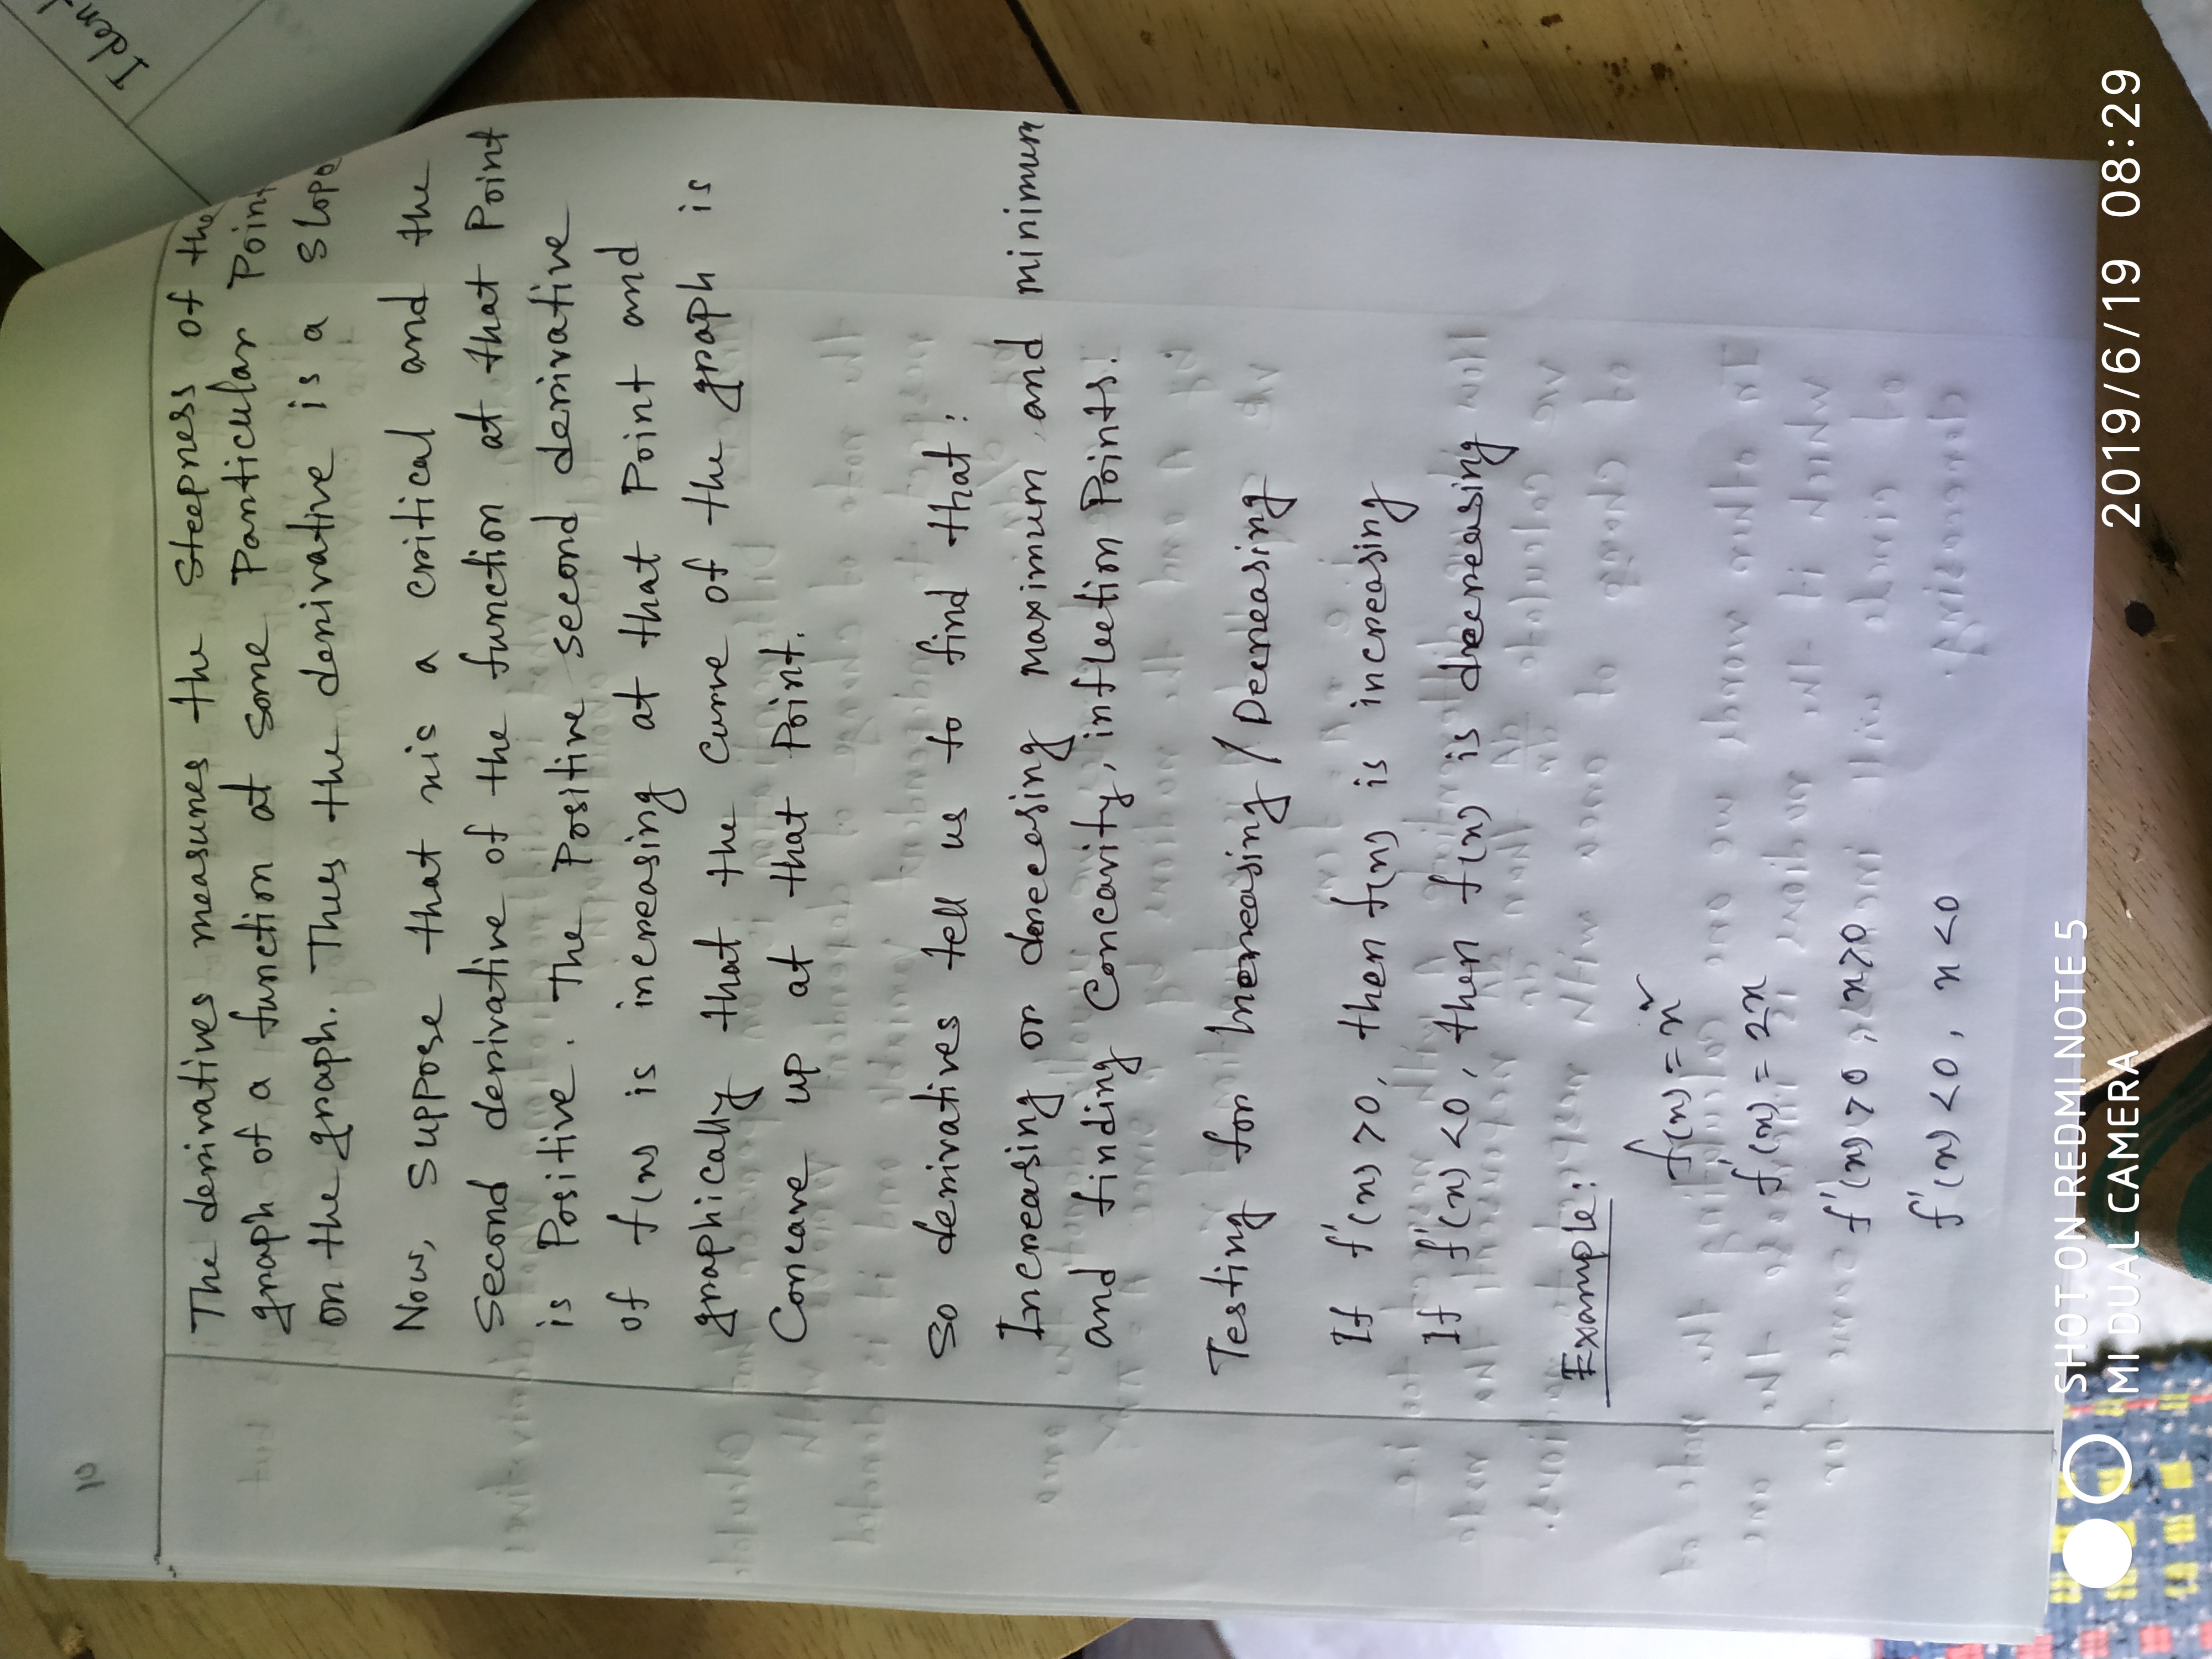 10
Ident
The derivatives measures the steepness of the
graph of a function at some Particular Point
on the graph. Thus the derivative is a slope
Now, suppose that x is a critical and the
second derivative of the function at that Point
is Positive. The Positive second derivative
of f(x) is increasing at that Point and
graphically that the curve of the graph is
Concave up at that Point.
So derivatives tell us to find that:
Increasing or derecesing maximum and minimum
and finding Concavity, inflection Points.
Testing for Increasing / Decreasing
If f'(x) >0, then f(x) is increasing
If f'(x) <0, then f(x) is decreasing
Example:
f(x) = x²
f'(x) = 2x
f'(x) >0, x>0
f'(x) <0, x<0
SHOT ON REDMI NOTE 5
MI DUAL CAMERA
2019/6/19 08:29